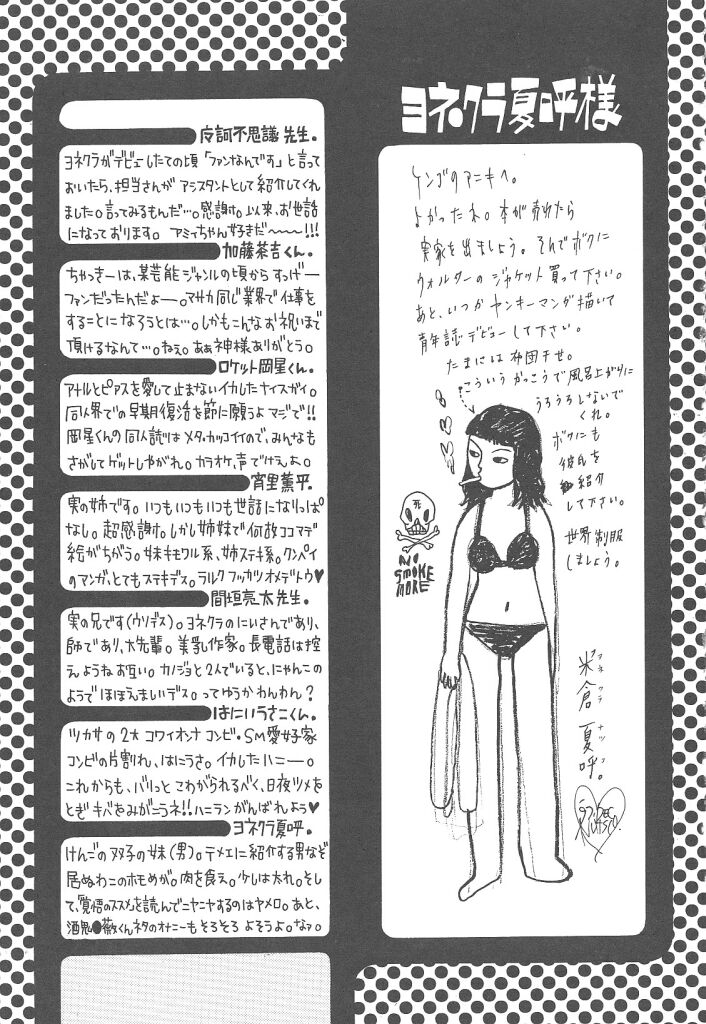 ヨネクラ夏呼様
ケンゴのアニキへ。
よかったネ。本が売れたら
実家を出ましょう。そんでボクに
ウォルターのジャケット買って下さい。
あと、いつかヤンキーマンガ描いて
青年誌デビューして下さい。
たまには布団干せ。
こういうかっこうで風呂上がりに
うろうろしないで
くれ。
ボクにも
彼氏を
紹介
して下さい。
世界制服
しましょう。
死
NO
SMOKE
MORE
米倉夏呼。
ヨネクラナツコ
皮訶不思議 先生。
ヨネクラがデビューしたての頃「ファンなんです」と言って
おいたら、担当さんがアシスタントとして紹介してくれ
ました。言ってみるもんだ…。感謝。以来、お世話
になっております。アミィちゃん好きだ〜〜〜!!!
加藤茶吉くん。
ちゃっきーは、某芸能ジャンルの頃からすっげー
ファンだったんだよー。マサカ同じ業界で仕事を
することになろうとは…。しかもこんなお祝いまで
頂けるなんて…。ねぇ。あぁ神様ありがとう。
ロケット岡星くん。
アナルとピアスを愛して止まないイカしたナイスガイ。
同人界での早期復活を節に願うよマジで!!
岡星くんの同人誌はメタメタカッコイイので、みんなも
さがしてゲットしやがれ。カラオケ、声でけぇよ。
宵里薫平。
実の姉です。いつもいつもいつも世話になりっぱ
なし。超感謝。しかし姉妹で何故ココマデ
絵がちがう。妹キモワル系、姉ステキ系。クンペイ
のマンガ、とてもステキデス。ラルクフッカツオメデトウ♥
間垣亮太先生。
実の兄です(ウソデス)。ヨネクラのにいさんであり、
師であり、大先輩。美乳作家。長電話は控
えようねお互い。カノジョと2人でいると、にゃんこの
ようでほほえましいデス。ってゆうかわんわん？
はにいうさこくん。
ツカサの2大コワイオンナコンビ・SM愛好家
コンビの片割れ、はにうさ。イカしたハニー。
これからも、バリっとこわがられるべく、日夜ツメを
とぎキバをみがこうネ!!ハニランがんばれよう♥
ヨネクラ夏呼。
けんごの双子の妹(男)。テメエに紹介する男なぞ
居ぬわこのホモめが。肉を食え。少しは太れ。そし
て、覚悟のススメを読んでニヤニヤするのはヤメロ。あと、
酒鬼●薇くんネタのオナニーもそろそろよそうよ。なァ。